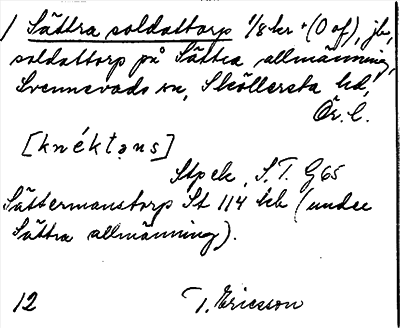 1 Sättra soldattorp 1/8 hr + (0 of), jb,
soldattorp på Sättra allmänning,
Svennevads sn, Sköllersta hd,
Ör. l.
[knéktəns]
Stpek, S.T. G65
Sättermanstorp St 114 hb (under
Sättra allmänning).
12 T. Ericsson